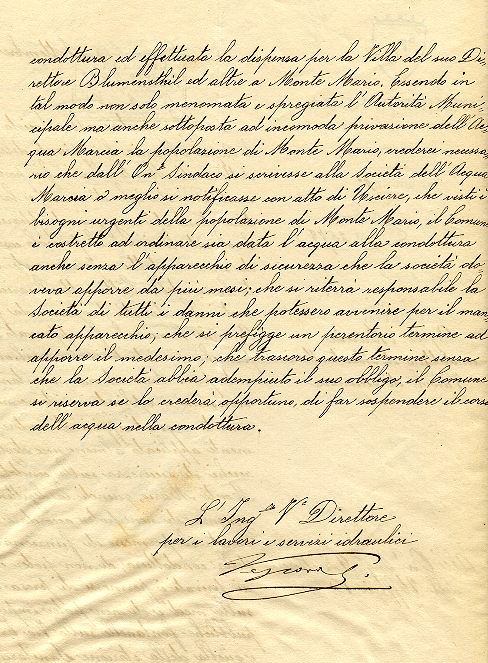 condottura ed effettuata la dispensa per la Villa del suo Di-
rettore Blumensthil ed altre a Monte Mario. Essendo in
tal modo non solo menomata e spregiata l'Autorità Muni-
cipale ma anche sottoposta ad incomoda privazione dell'Ac-
qua Marcia la popolazione di Monte Mario, crederei necessa-
rio che dall'On. Sindaco si scrivesse alla Società dell'Acqua
Marcia o meglio si notificasse con atto di Usciere, che visti i
bisogni urgenti della popolazione di Monte Mario, il Comune
è costretto ad ordinare sia data l'acqua alla condottura
anche senza l'apparecchio di sicurezza che la società do-
veva apporre da più mesi; che si riterrà responsabile la
Società di tutti i danni che potessero avvenire per il man-
cato apparecchio; che si prefigge un perentorio termine ad
apporre il medesimo; che trascorso questo termine senza
che la Società abbia adempiuto il suo obbligo, il Comune
si riserva se lo crederà opportuno, di far sospendere il corso
dell'acqua nella condottura.
L'Ing.re V.e Direttore
per i lavori e servizi idraulici